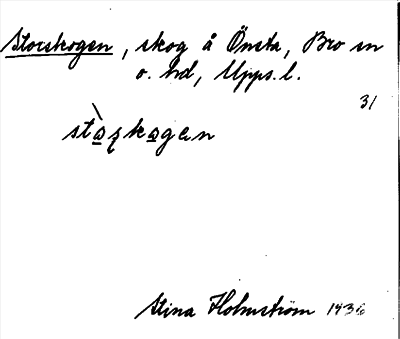 Storskogen, skog å Önsta, Bro sn
o. hd, Upps. l.
31
stàrskogen
Stina Holmström 1936